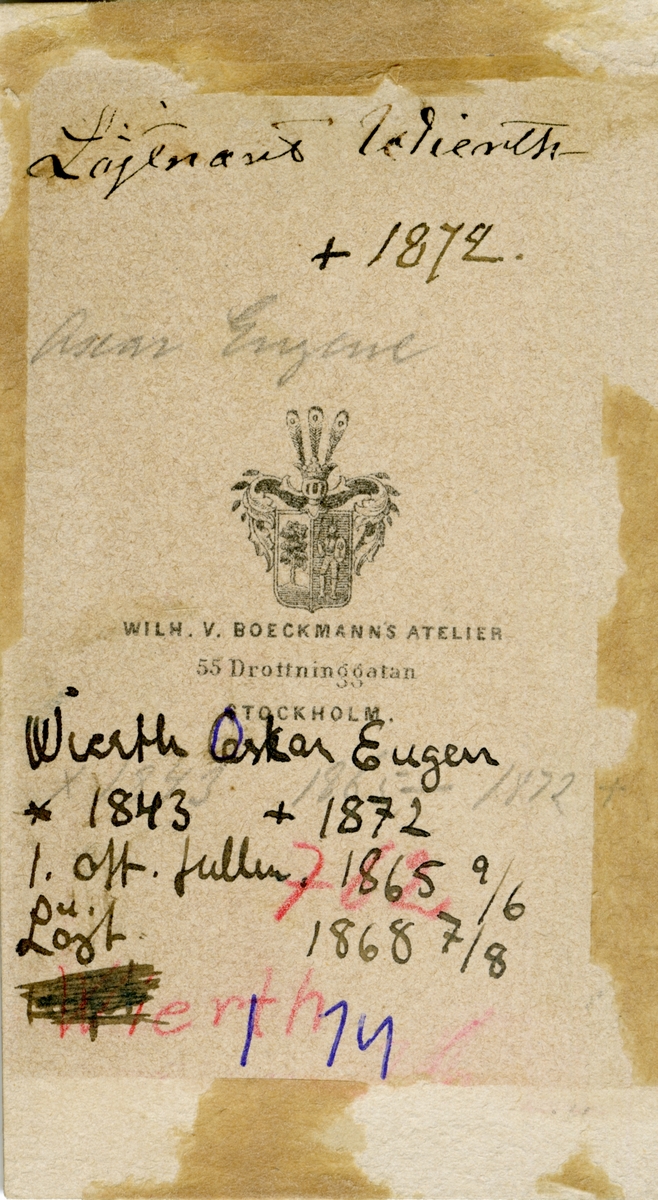 Löjtnant Wierth
+ 1872.
Oscar Eugene
WILH. V. BOECKMANNS ATELIER
55 Drottninggatan
STOCKHOLM.
Wierth Oskar Eugen
x 1843 1865 1872 +
* 1843 + 1872
1. off. fullm. 1865 9/6
762
Löjt. 1868 7/8
Wierth
1 74